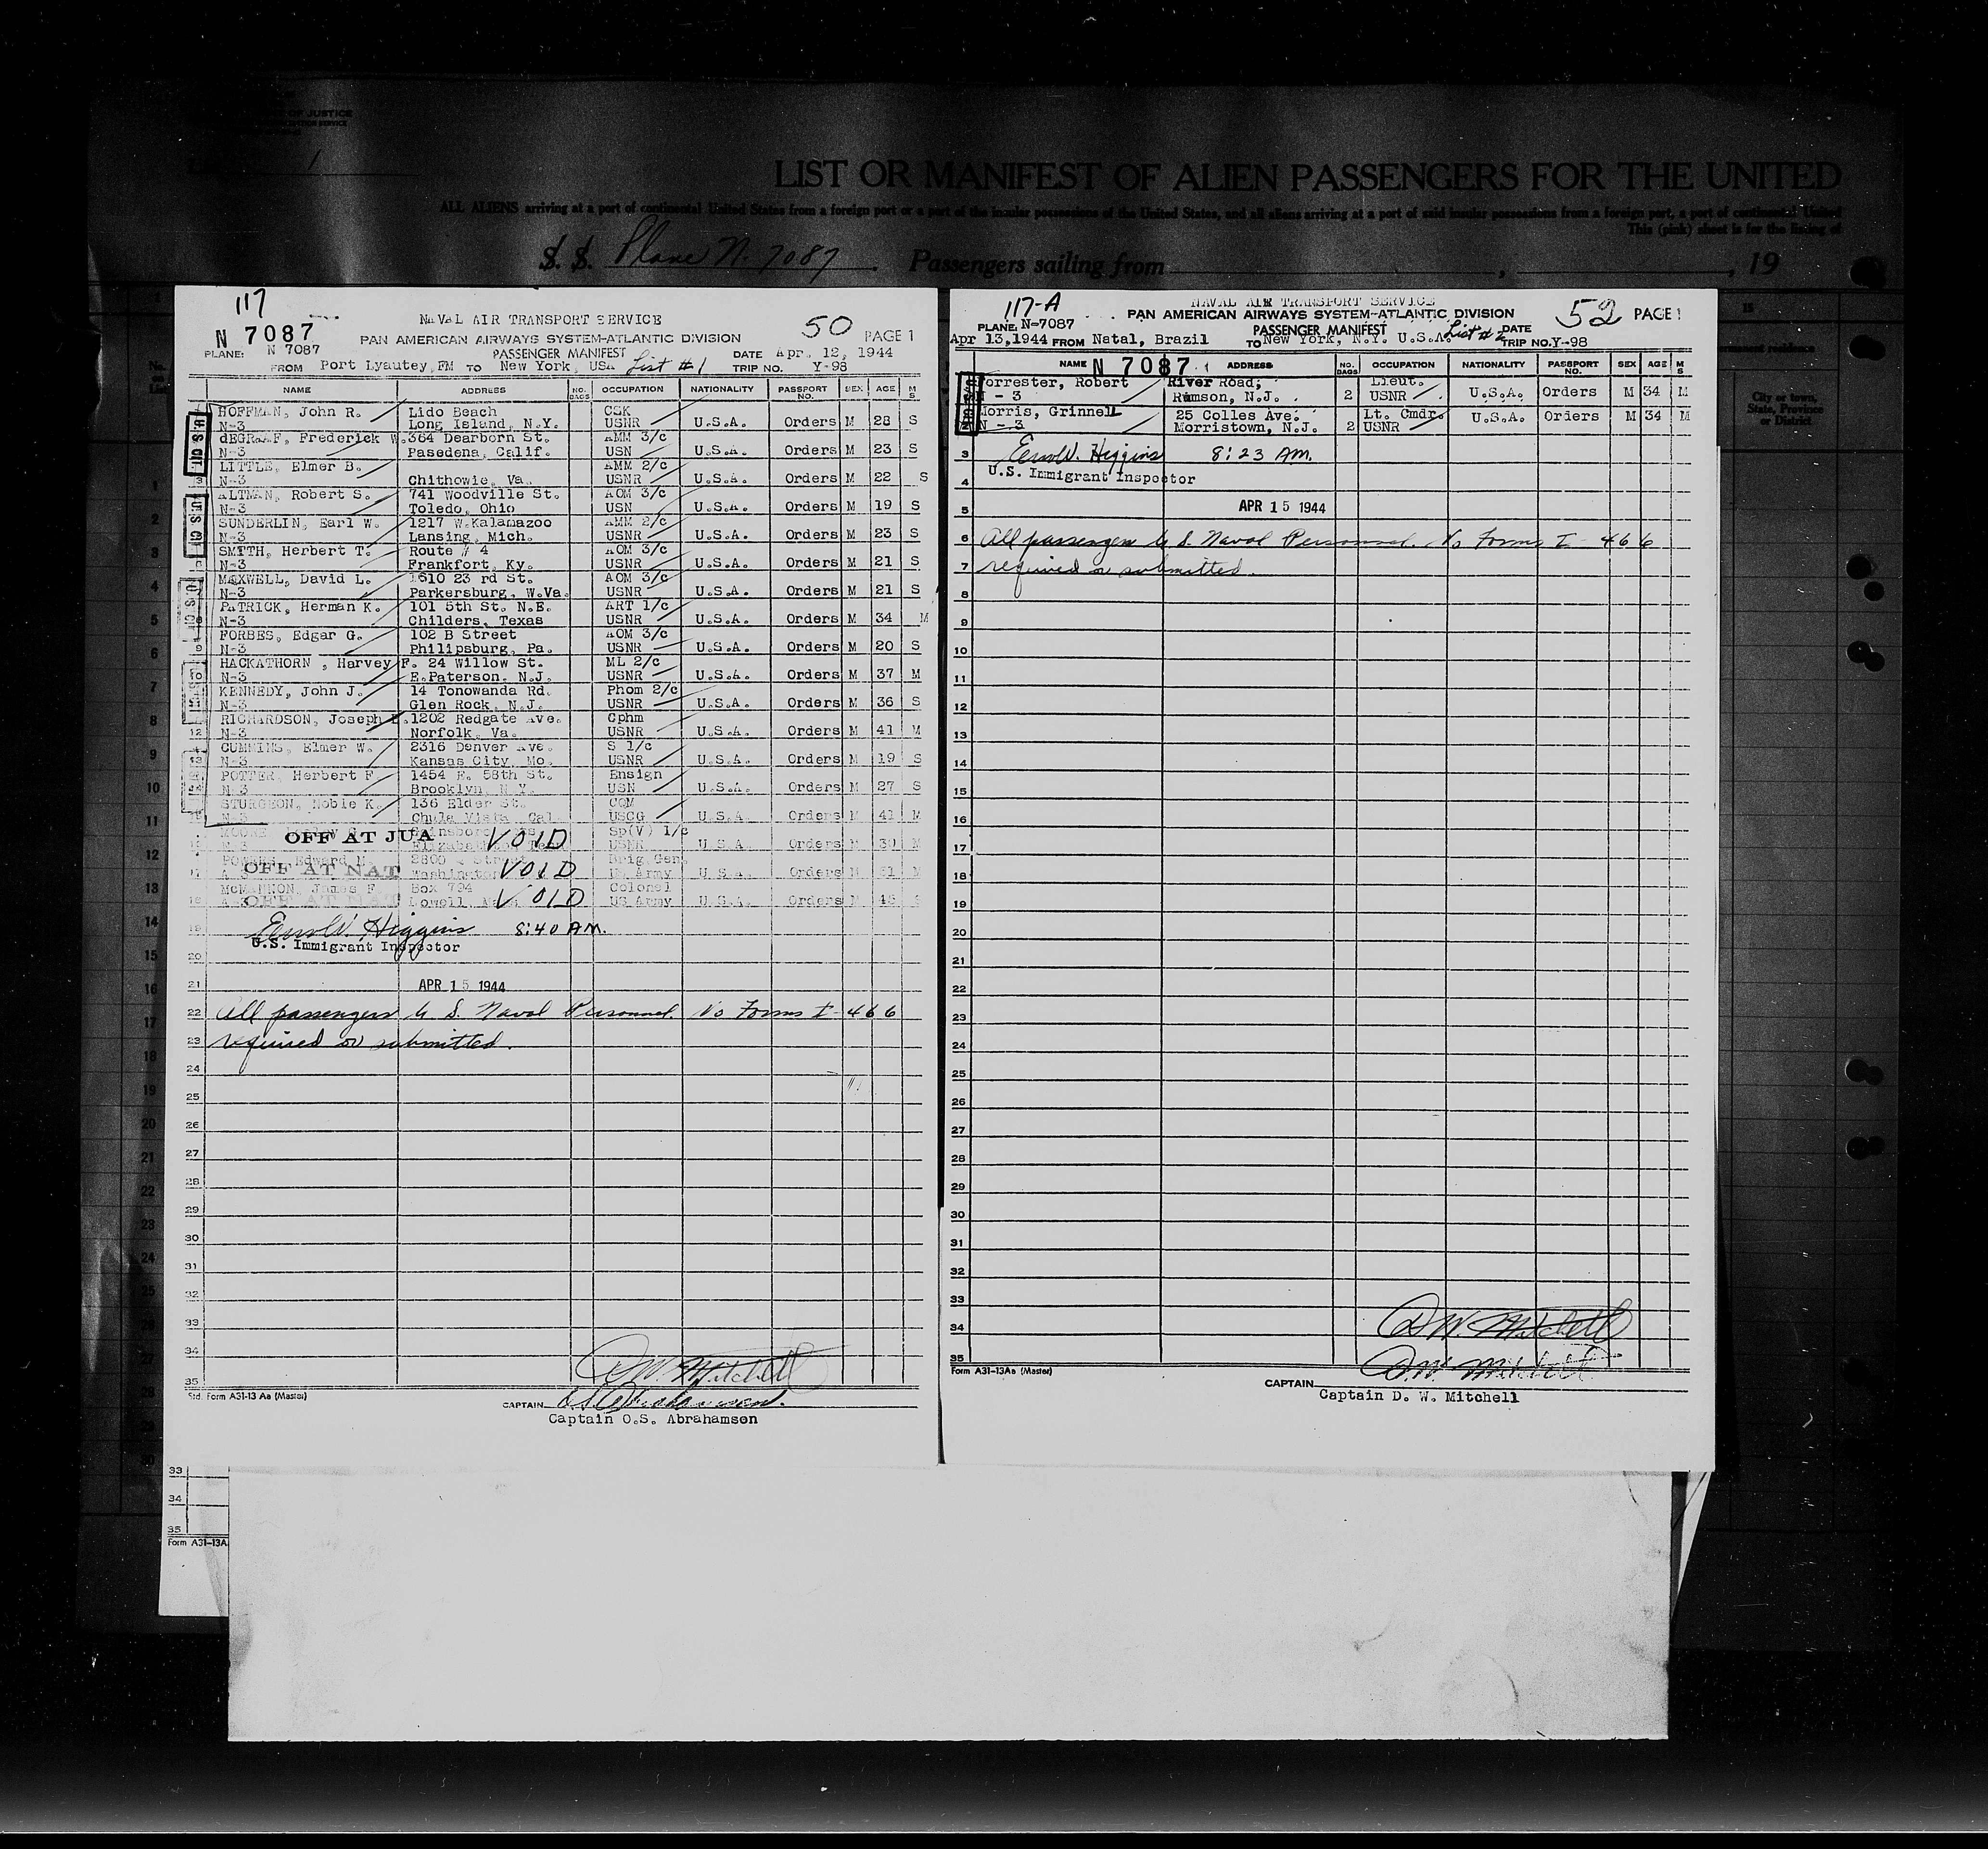 OF JUSTICE
1
LIST OR MANIFEST OF ALIEN PASSENGERS FOR THE UNITED
ALL ALIENS arriving at a port of continental United States from a foreign port or a port of the insular possessions of the United States, and all aliens arriving at a port of said insular possessions from a foreign port, a port of continental United
This (pink) sheet is for the listing of
S. S. Plane N. 7087 Passengers sailing from , , 19
117
NAVAL AIR TRANSPORT SERVICE
50 PAGE 1
N 7087
PAN AMERICAN AIRWAYS SYSTEM-ATLANTIC DIVISION
PLANE: N 7087 PASSENGER MANIFEST DATE Apr. 12, 1944
FROM Port Lyautey, FM TO New York, USA List #1 TRIP NO. Y-98
NAME ADDRESS NO. BAGS OCCUPATION NATIONALITY PASSPORT NO. SEX AGE M S
HOFFMAN, John R. Lido Beach CSK
N-3 Long Island, N.Y. USNR U.S.A. Orders M 28 S
dEGRAAF, Frederick W. 364 Dearborn St. AMM 3/c
N-3 Pasedena, Calif. USN U.S.A. Orders M 23 S
LITTLE, Elmer B. AMM 2/c
N-3 Chithowie, Va. USNR U.S.A. Orders M 22 S
ALTMAN, Robert S. 741 Woodville St. AOM 3/c
N-3 Toledo, Ohio USN U.S.A. Orders M 19 S
SUNDERLIN, Earl W. 1217 W.Kalamazoo AMM 2/c
N-3 Lansing, Mich. USNR U.S.A. Orders M 23 S
SMITH, Herbert T. Route # 4 AOM 3/c
N-3 Frankfort, Ky. USNR U.S.A. Orders M 21 S
MAXWELL, David L. 1510 23 rd St. AOM 3/c
N-3 Parkersburg, W.Va. USNR U.S.A. Orders M 21 S
PATRICK, Herman K. 101 5th St. N.E. ART 1/c
N-3 Childers, Texas USNR U.S.A. Orders M 34 M
FORBES, Edgar G. 102 B Street AOM 3/c
N-3 Philipsburg, Pa. USNR U.S.A. Orders M 20 S
HACKATHORN , Harvey F. 24 Willow St. ML 2/c
N-3 E.Paterson, N.J. USNR U.S.A. Orders M 37 M
KENNEDY, John J. 14 Tonowanda Rd. Phom 2/c
N-3 Glen Rock, N.J. USNR U.S.A. Orders M 36 S
RICHARDSON, Joseph 1202 Redgate Ave. Cphm
12 N-3 Norfolk, Va. USNR U.S.A. Orders M 41 M
CUMMINS, Elmer W. 2316 Denver Ave. S 1/c
N-3 Kansas City, Mo. USNR U.S.A. Orders M 19 S
POTTER, Herbert F. 1454 E. 58th St. Ensign
N-3 Brooklyn, N.Y. USN U.S.A. Orders M 27 S
STURGEON, Hobie K. 136 Elder St. CQM
N-3 Chula Vista, Cal. USCG U.S.A. Orders M 41 M
MOORE OFF AT JUA VOID Sp(V) 1/c
N-3 USNR U.S.A. Orders 30 M
Edward M. 2800 Street Brig.Gen.
OFF AT NAT Washington VOID US Army U.S.A. Orders M 51 M
McMAHON, James F. Box 794 Colonel
OFF AT NAT Lowell VOID US Army U.S.A. Orders M
Higgins 8:40 AM.
U.S. Immigrant Inspector
APR 15 1944
All passengers U. S. Naval Personnel. No Forms I-466
required or submitted.
24
25
26
27
28
29
30
31
32
33
34
35
D W Mitchell
Std. Form A31-13 Aa (Master)
CAPTAIN O S Abrahamson
Captain O.S. Abrahamson
117-A
NAVAL AIR TRANSPORT SERVICE
52 PAGE 1
PAN AMERICAN AIRWAYS SYSTEM-ATLANTIC DIVISION
PLANE: N-7087 PASSENGER MANIFEST List #2 DATE
Apr 13,1944 FROM Natal, Brazil TO New York, N.Y. U.S.A. TRIP NO. Y-98
NAME N 7087 ADDRESS NO. BAGS OCCUPATION NATIONALITY PASSPORT NO. SEX AGE M S
Forrester, Robert River Road, Lieut.
N - 3 Rumson, N.J. 2 USNR U.S.A. Orders M 34 M
Morris, Grinnell 25 Colles Ave. Lt. Cmdr.
N - 3 Morristown, N.J. 2 USNR U.S.A. Orders M 34 M
3 Higgins 8:23 AM.
4 U.S. Immigrant Inspector
5 APR 15 1944
6 All passengers U. S. Naval Personnel. No Forms I-466
7 required or submitted.
8
9
10
11
12
13
14
15
16
17
18
19
20
21
22
23
24
25
26
27
28
29
30
31
32
33
34 D W. Mitchell
35 D W Mitchell
Form A31-13Aa (Master)
CAPTAIN
Captain D. W. Mitchell
City or town,
State, Province
or District
33
34
35
Form A31-13A